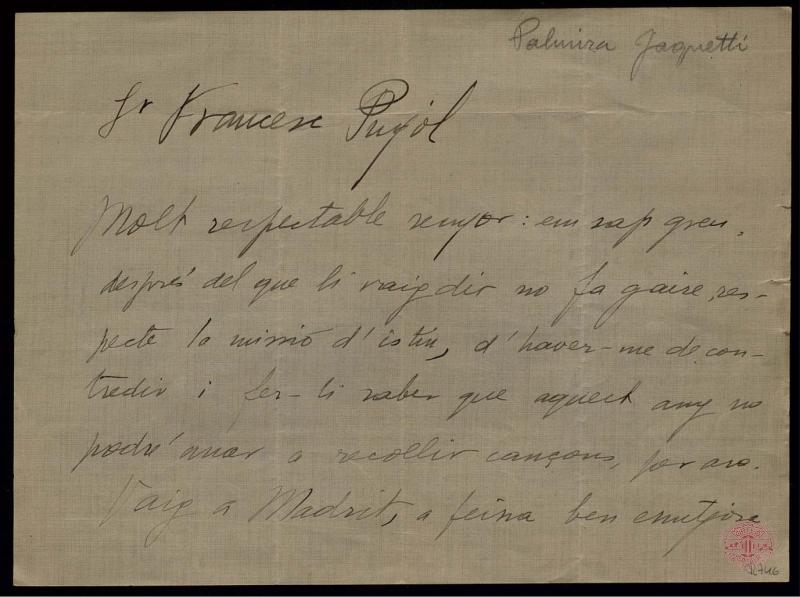 Palmira Jaquetti
Sr Francesc Pujol
Molt respectable senyor: em sap greu,
després del que li vaig dir no fa gaire, res-
pecte la missió d'istiu, d'haver-me de con-
tredir i fer-li saber que aquest any no
podré anar a recollir cançons, per ara.
Vaig a Madrit, a feina ben enutjosa